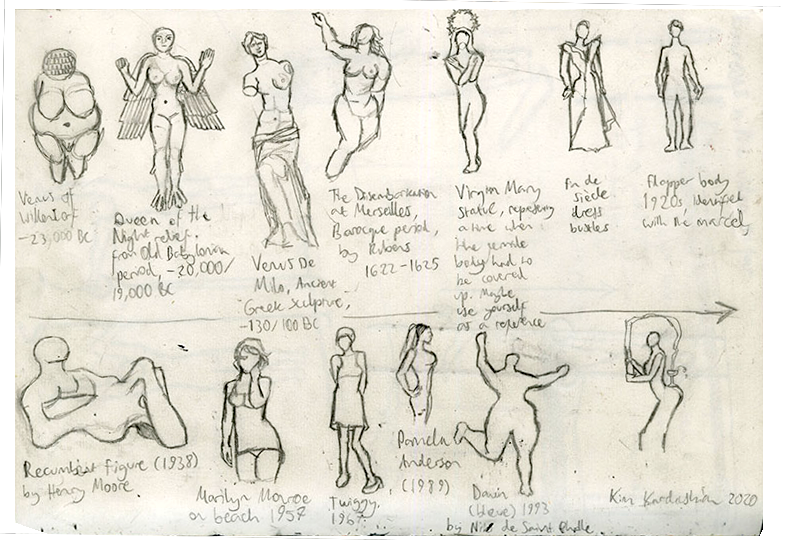 Venus of
Willendorf
-23,000 BC
Queen of the
Night relief.
from Old Babylonian
period, -20,000/
19,000 BC
Venus De
Milo, Ancient
Greek Sculpture,
-130/100 BC
The Disembarkation
at Merseilles,
Baroque period,
by Rubens
1622-1625
Virgin Mary
Statue, repesenting
a time when
the female
body had to
be covered
up. Maybe
use yourself
as a reference
fin de
siecle
dress
bustles
Flapper body
1920s
with the marcel
Recumbent figure (1938)
by Henry Moore.
Marilyn Monroe
on beach 1957
Twiggy,
1967
Pamela
Anderson
(1989)
Dawn
1993
by Niki de Saint Phalle.
Kim Kardashian 2020